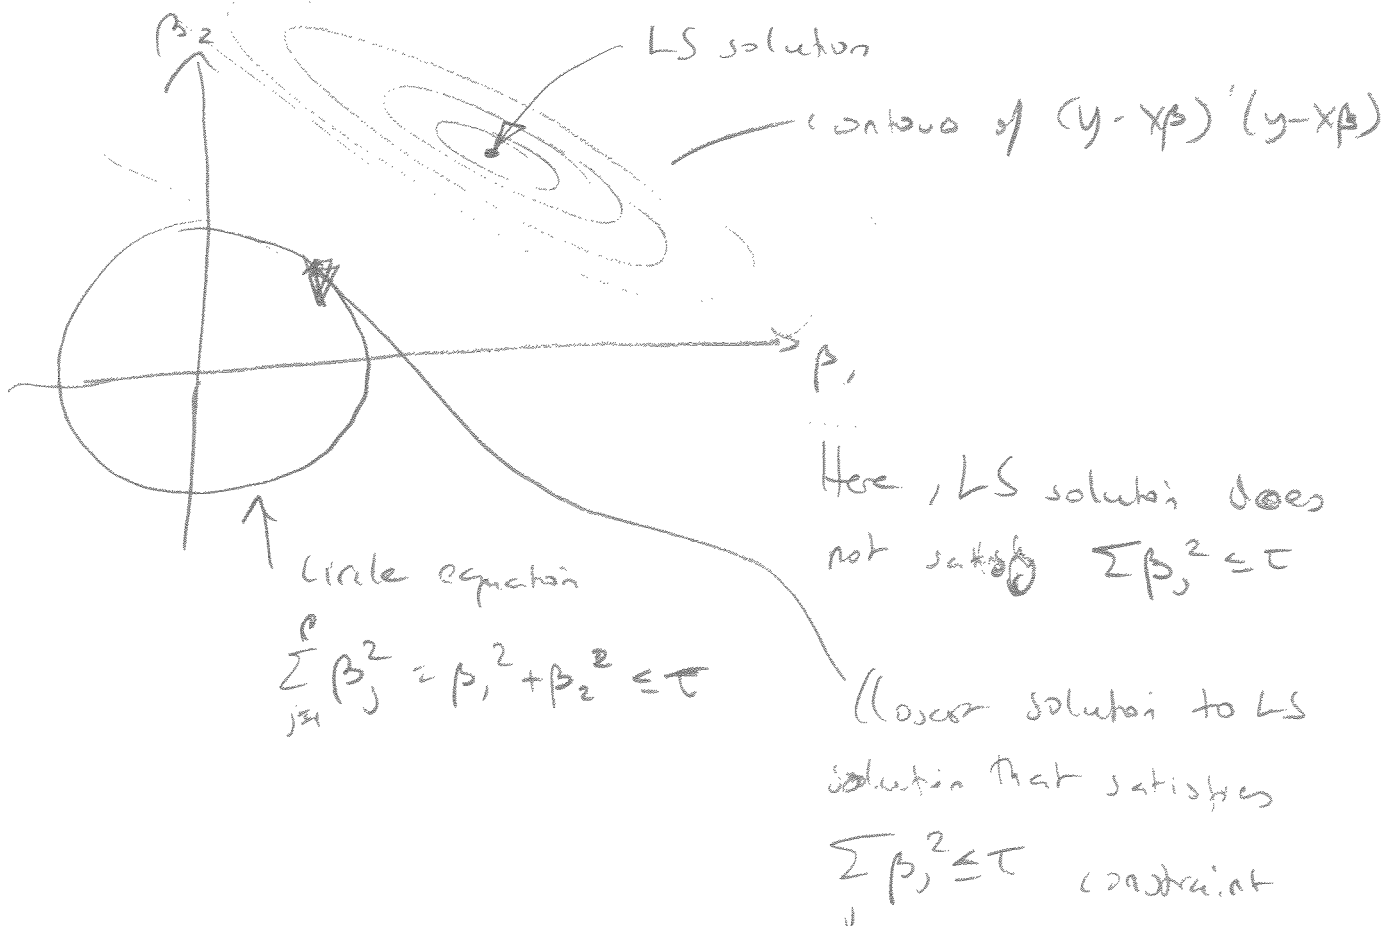 β2
LS solution
contours of (y - Xβ)'(y - Xβ)
β1
Here, LS solution does
not satisfy Σβj² ≤ τ
circle equation
p
Σ βj² = β1² + β2² ≤ τ
j=1
Closest solution to LS
solution that satisfies
Σ βj² ≤ τ constraint
j